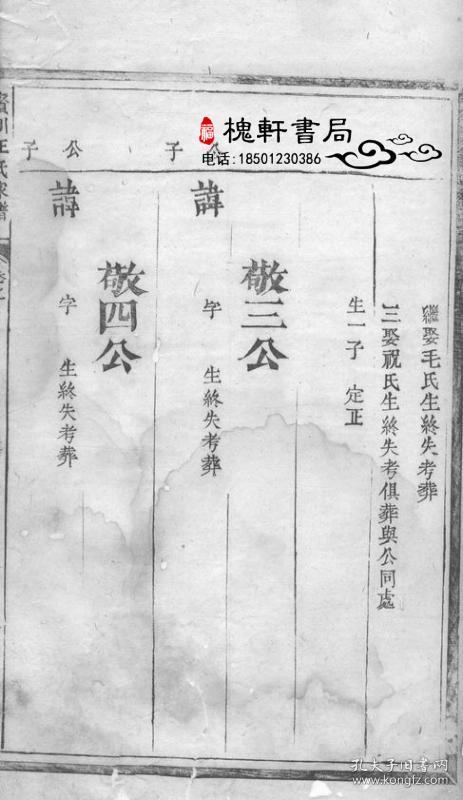 福
槐軒書局
电话:18501230386
繼娶毛氏生終失考葬
三娶祝氏生終失考俱葬與公同處
生一子 定正
敬三公
公 子
諱 字 生終失考葬
敬四公
公 子
諱 字 生終失考葬
王氏家譜
孔夫子旧书网
www.kongfz.com